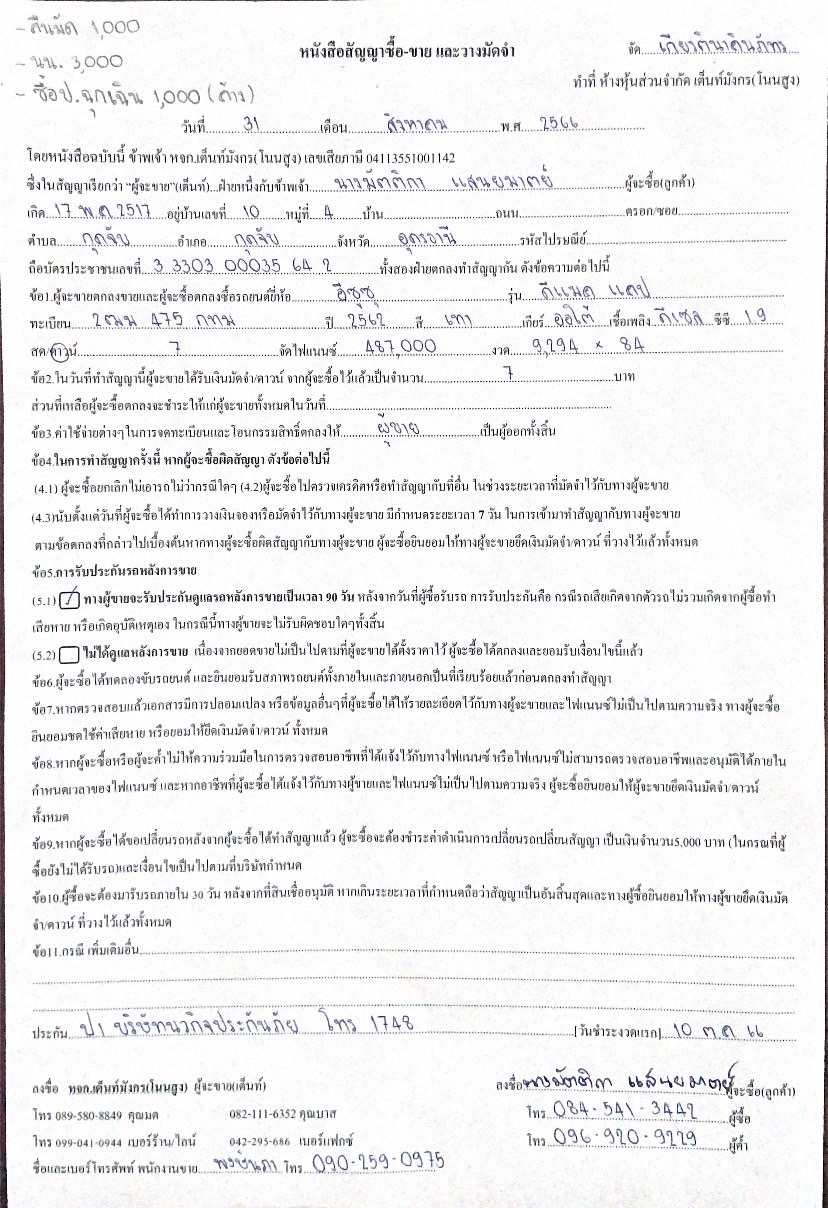 - คืนมัด 1,000
- นน. 3,000
- ซื้อป.ฉุกเฉิน 1,000 (ค้าง)
หนังสือสัญญาซื้อ-ขาย และวางมัดจำ
จัด เกียรตินาคินภัทร
ทำที่ ห้างหุ้นส่วนจำกัด เต็นท์มังกร(โนนสูง)
วันที่ 31 เดือน สิงหาคม พ.ศ 2566
โดยหนังสือฉบับนี้ ข้าพเจ้า หจก.เต็นท์มังกร(โนนสูง) เลขเสียภาษี 04113551001142
ซึ่งในสัญญาเรียกว่า "ผู้จะขาย"(เต็นท์)...ฝ่ายหนึ่งกับข้าพเจ้า นางมัตติกา แสนยมาตย์ ผู้จะซื้อ(ลูกค้า)
เกิด 17 พ.ค 2517 อยู่บ้านเลขที่ 10 หมู่ที่ 4 บ้าน ถนน ตรอก/ซอย
ตำบล กุดจับ อำเภอ กุดจับ จังหวัด อุดรธานี รหัสไปรษณีย์
ถือบัตรประชาชนเลขที่ 3 3303 00035 64 2 ทั้งสองฝ่ายตกลงทำสัญญากัน ดังข้อความต่อไปนี้
ข้อ1.ผู้จะขายตกลงขายและผู้จะซื้อตกลงซื้อรถยนต์ยี่ห้อ อีซูซุ รุ่น ดีแมค แคป
ทะเบียน 2ฒม 475 กทม ปี 2562 สี เทา เกียร์ ออโต้ เชื้อเพลิง ดีเซล ซีซี 1.9
สด/ดาวน์ 7 จัดไฟแนนซ์ 487,000 งวด 9,294 x 84
ข้อ2.ในวันที่ทำสัญญานี้ผู้จะขายได้รับเงินมัดจำ/ดาวน์ จากผู้จะซื้อไว้แล้วเป็นจำนวน 7 บาท
ส่วนที่เหลือผู้จะซื้อตกลงจะชำระให้แก่ผู้จะขายทั้งหมดในวันที่
ข้อ3.ค่าใช้จ่ายต่างๆในการจดทะเบียนและโอนกรรมสิทธิ์ตกลงให้ ผู้ขาย เป็นผู้ออกทั้งสิ้น
ข้อ4.ในการทำสัญญาครั้งนี้ หากผู้จะซื้อผิดสัญญา ดังข้อต่อไปนี้
(4.1) ผู้จะซื้อยกเลิกไม่เอารถไม่ว่ากรณีใดๆ (4.2)ผู้จะซื้อไปตรวจเครดิตหรือทำสัญญากับที่อื่น ในช่วงระยะเวลาที่มัดจำไว้กับทางผู้จะขาย
(4.3)นับตั้งแต่วันที่ผู้จะซื้อได้ทำการวางเงินจองหรือมัดจำไว้กับทางผู้จะขาย มีกำหนดระยะเวลา 7 วัน ในการเข้ามาทำสัญญากับทางผู้จะขาย
ตามข้อตกลงที่กล่าวไปเบื้องต้นหากทางผู้จะซื้อผิดสัญญากับทางผู้จะขาย ผู้จะซื้อยินยอมให้ทางผู้จะขายยึดเงินมัดจำ/ดาวน์ ที่วางไว้แล้วทั้งหมด
ข้อ5.การรับประกันรถหลังการขาย
(5.1) ทางผู้ขายจะรับประกันดูแลรถหลังการขายเป็นเวลา 90 วัน หลังจากวันที่ผู้ซื้อรับรถ การรับประกันคือ กรณีรถเสียเกิดจากตัวรถ ไม่รวมเกิดจากผู้ซื้อทำ
เสียหาย หรือเกิดอุบัติเหตุเอง ในกรณีนี้ทางผู้ขายจะไม่รับผิดชอบใดๆทั้งสิ้น
(5.2) ไม่ได้ดูแลหลังการขาย เนื่องจากยอดขายไม่เป็นไปตามที่ผู้จะขายได้ตั้งราคาไว้ ผู้จะซื้อได้ตกลงและยอมรับเงื่อนไขนี้แล้ว
ข้อ6.ผู้จะซื้อได้ทดลองขับรถยนต์ และยินยอมรับสภาพรถยนต์ทั้งภายในและภายนอกเป็นที่เรียบร้อยแล้วก่อนตกลงทำสัญญา
ข้อ7.หากตรวจสอบแล้วเอกสารมีการปลอมแปลง หรือข้อมูลอื่นๆที่ผู้จะซื้อได้ให้รายละเอียดไว้กับทางผู้จะขายและไฟแนนซ์ไม่เป็นไปตามความจริง ทางผู้จะซื้อ
ยินยอมชดใช้ค่าเสียหาย หรือยอมให้ยึดเงินมัดจำ/ดาวน์ ทั้งหมด
ข้อ8.หากผู้จะซื้อหรือผู้จะค้ำไม่ให้ความร่วมมือในการตรวจสอบอาชีพที่ได้แจ้งไว้กับทางไฟแนนซ์ หรือไฟแนนซ์ไม่สามารถตรวจสอบอาชีพและอนุมัติได้ภายใน
กำหนดเวลาของไฟแนนซ์ และหากอาชีพที่ผู้จะซื้อได้แจ้งไว้กับทางผู้ขายและไฟแนนซ์ไม่เป็นไปตามความจริง ผู้จะซื้อยินยอมให้ผู้จะขายยึดเงินมัดจำ/ดาวน์
ทั้งหมด
ข้อ9.หากผู้จะซื้อได้ขอเปลี่ยนรถหลังจากผู้จะซื้อได้ทำสัญญาแล้ว ผู้จะซื้อจะต้องชำระค่าดำเนินการเปลี่ยนรถเปลี่ยนสัญญา เป็นเงินจำนวน5,000 บาท (ในกรณที่ผู้
ซื้อยังไม่ได้รับรถ)และเงื่อนไขเป็นไปตามที่บริษัทกำหนด
ข้อ10.ผู้ซื้อจะต้องมารับรถภายใน 30 วัน หลังจากที่สินเชื่ออนุมัติ หากเกินระยะเวลาที่กำหนดถือว่าสัญญาเป็นอันสิ้นสุดและทางผู้ซื้อยินยอมให้ทางผู้ขายยึดเงินมัด
จำ/ดาวน์ ที่วางไว้แล้วทั้งหมด
ข้อ11.กรณี เพิ่มเติมอื่น
ประกัน ป1 บริษัทนวกิจประกันภัย โทร 1748 [วันชำระงวดแรก] 10 ต.ค 66
ลงชื่อ หจก.เต็นท์มังกร(โนนสูง) ผู้จะขาย(เต็นท์) ลงชื่อ นางมัตติกา แสนยมาตย์ ผู้จะซื้อ(ลูกค้า)
โทร 089-580-8849 คุณมด 082-111-6352 คุณบาส โทร 084-541-3442 ผู้ซื้อ
โทร 099-041-0944 เบอร์ร้าน/ไลน์ 042-295-686 เบอร์แฟกซ์ โทร 096-920-9229 ผู้ค้ำ
ชื่อและเบอร์โทรศัพท์ พนักงานขาย โทร 090-259-0975